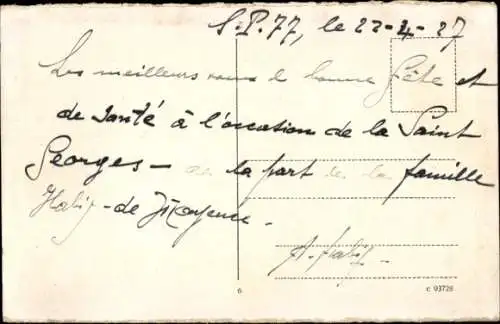 S.P.77, le 22-4-27
Les meilleurs vœux de bonne Fête et
de Santé à l'occation de la Saint
Georges - de la part de la famille
Habig - de Mayence.
A. Habig
6
c 93728